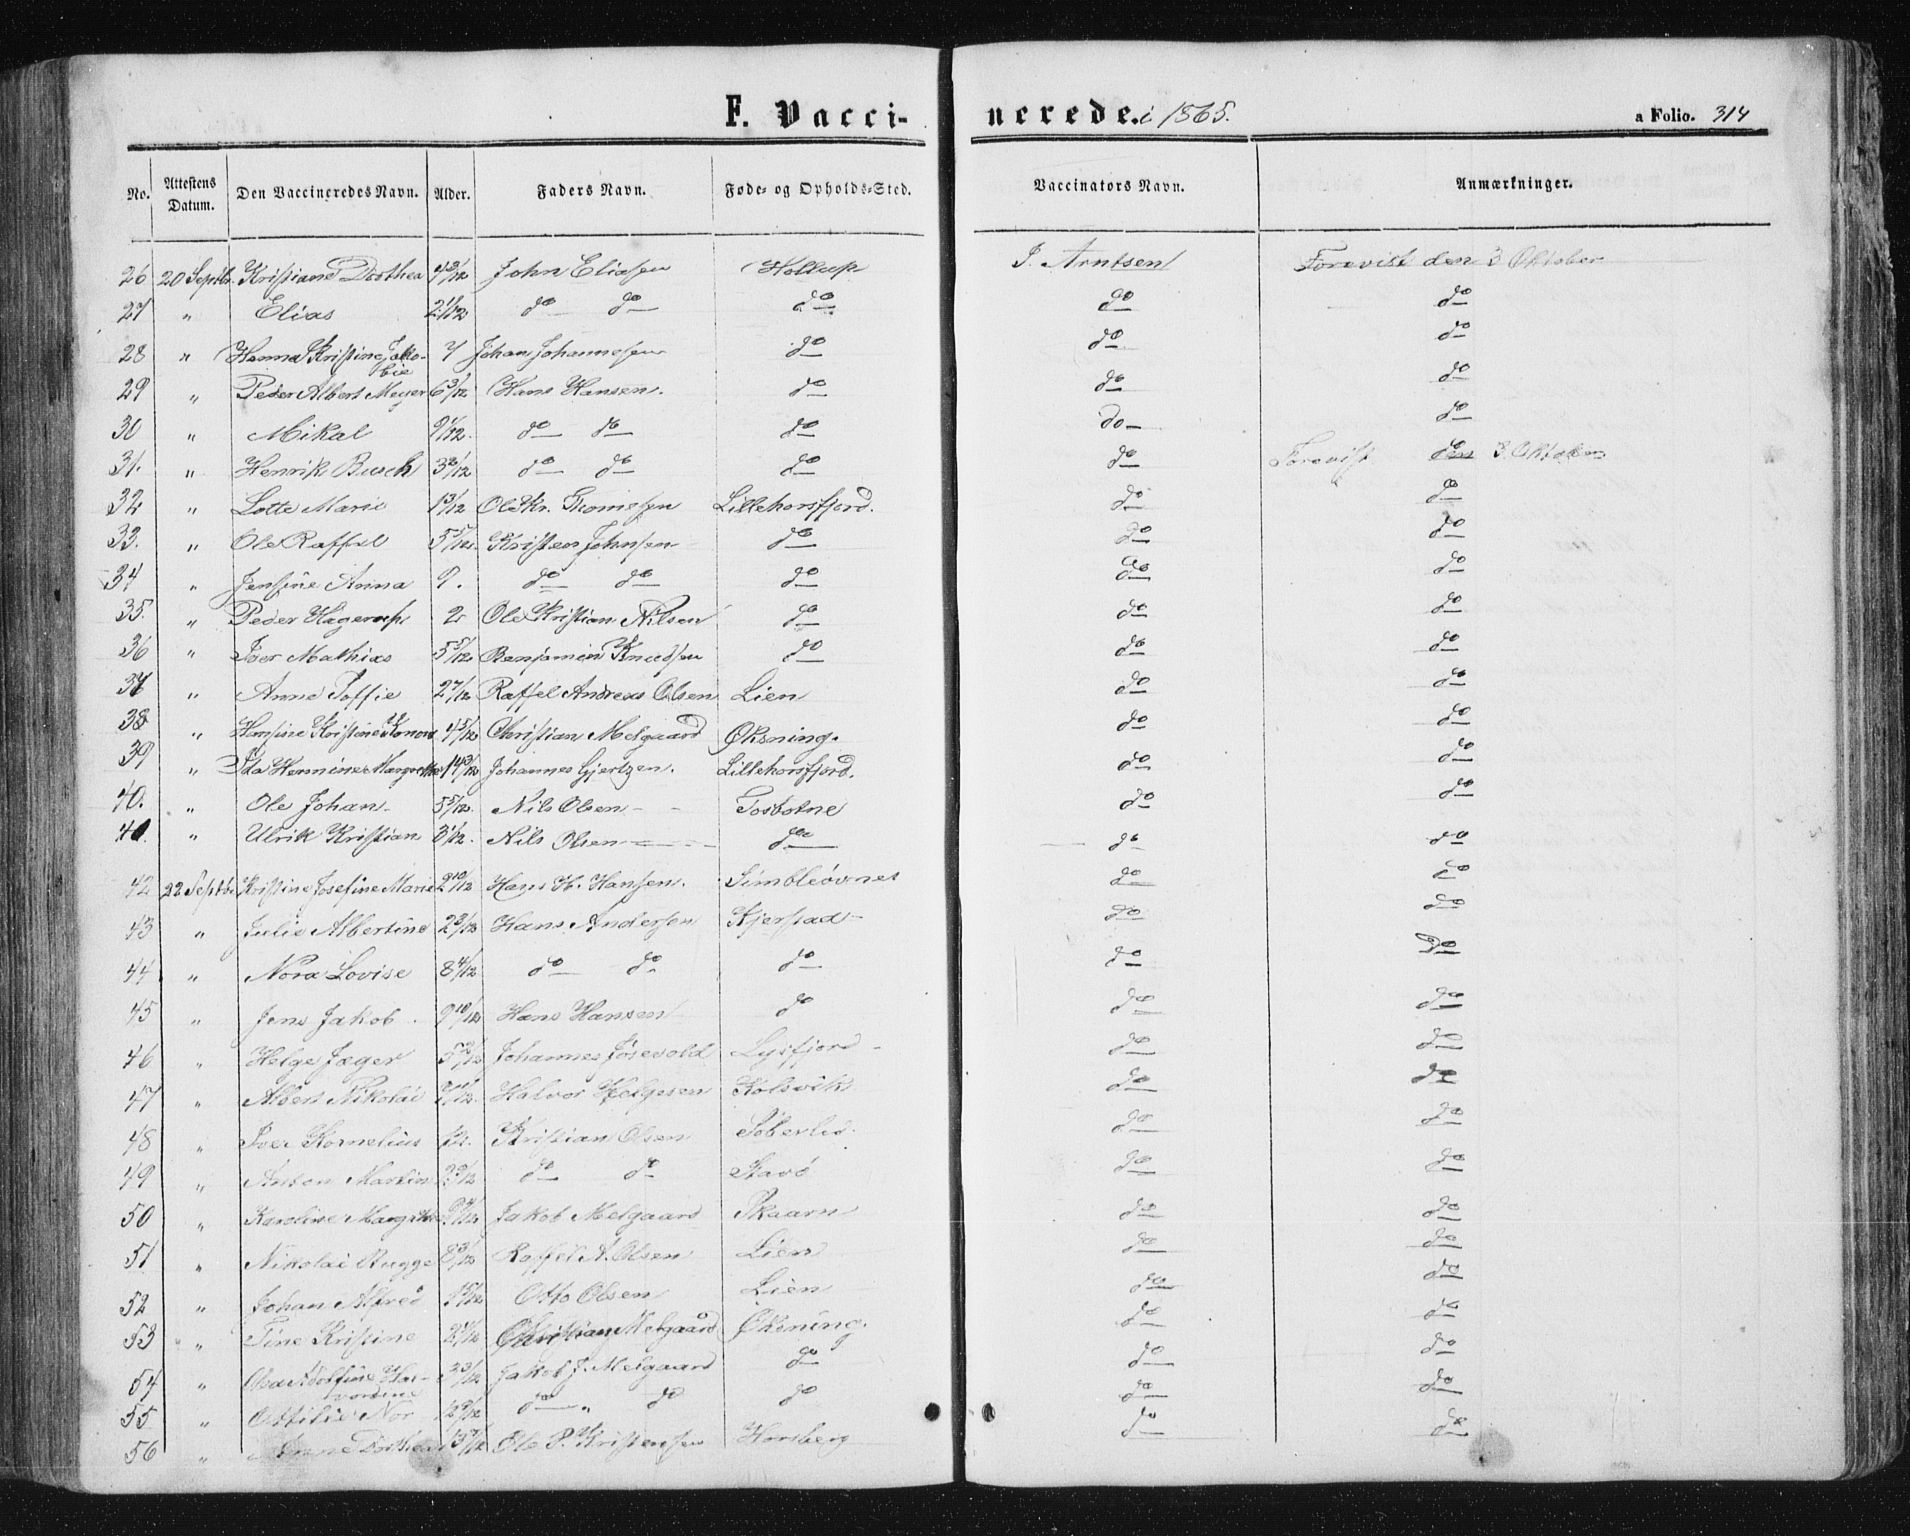 F. Vaccinerede. i 1865. a Folio. 314
No. Attestens Datum. Den Vaccineredes Navn. Alder. Faders Navn. Føde- og Opholds-Sted. Vaccinators Navn. Anmærkninger.
26 20 Septbr. Kristiane Dorthea John Eliasen Hollup J. Arntsen Forevist den 3 Oktober
27 " Elias 2 1/12 do do do do do
28 " Hanna Kristine Jakobie 7 Johan Johannesen do do do
29 " Peder Albert Meyer 6 3/12 Hans Hansen. do do do
30 " Mikal 9 1/12. do do do do do
31. " Henrik Busch do do do do Forevist den 3 Oktober
32 " Lotte Marie 1 3/12 Ole Kr. Thomesen Lillehorsfjord. do do
33. " Ole Raffel 5 5/12. Kristen Johnsen do do do
34 " Jensine Anna 9. do do do do do
35. " Peder Hagerup 2 Ole Kristian Nilsen do do do
36 " Iver Mathias 5 5/12. Benjamin Knudsen do do do
37 " Anne Soffie 2 7/12 Raffel Andreas Olsen Lien do do
38 " Hansine Kristine 4 5/12 Christian Melgaard Øksning. do do
39 " Ida Hermine Margrethe Johannes Gjertsen. Lillehorsfjord. do do
40. " Ole Johan 5/12. Nils Olsen Tosbotne do do
40. " Ulrik Kristian 3 1/12. Nils Olsen do do do
42 22 Septbr Kristine Josefine Marie 2 10/12 Hans H. Hansen. do do
43 " Julie Albertine Hans Andersen Kjerstad do do
44 " Nora Lovise 8 4/12 do do do do do
45 " Jens Jakob 9 10/12 Hans Hansen do do do
46 " Helge Jæger Johannes Josevold Lysfjord do do
47 " Albert Nikolai Halvor Helgesen Kolsvik do do
48 " Iver Kornelius Kristian Olsen do do
49 " Anton Martin do do Stavø do do
50 " Karoline Margrethe Jakob Melgaard Skaarn do do
51 " Nikolai Bugge 8 3/12 Raffel A. Olsen Lien do do
52 " Johan Alfred Otto Olsen Lien do do
53 " Tine Kristine Christian Melgaard Øksning. do do
54 " Adolfine 3 3/12 Jakob J. Melgaard do do do
55 " Ottilie Nor do " do do do do
56 " Dorthea Ole P. Kristensen Horsberg do do